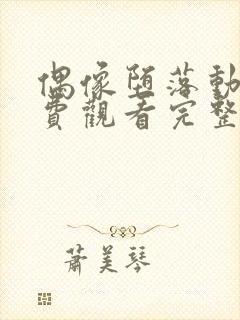 偶像堕落動
費觀看完整
蕭美琴